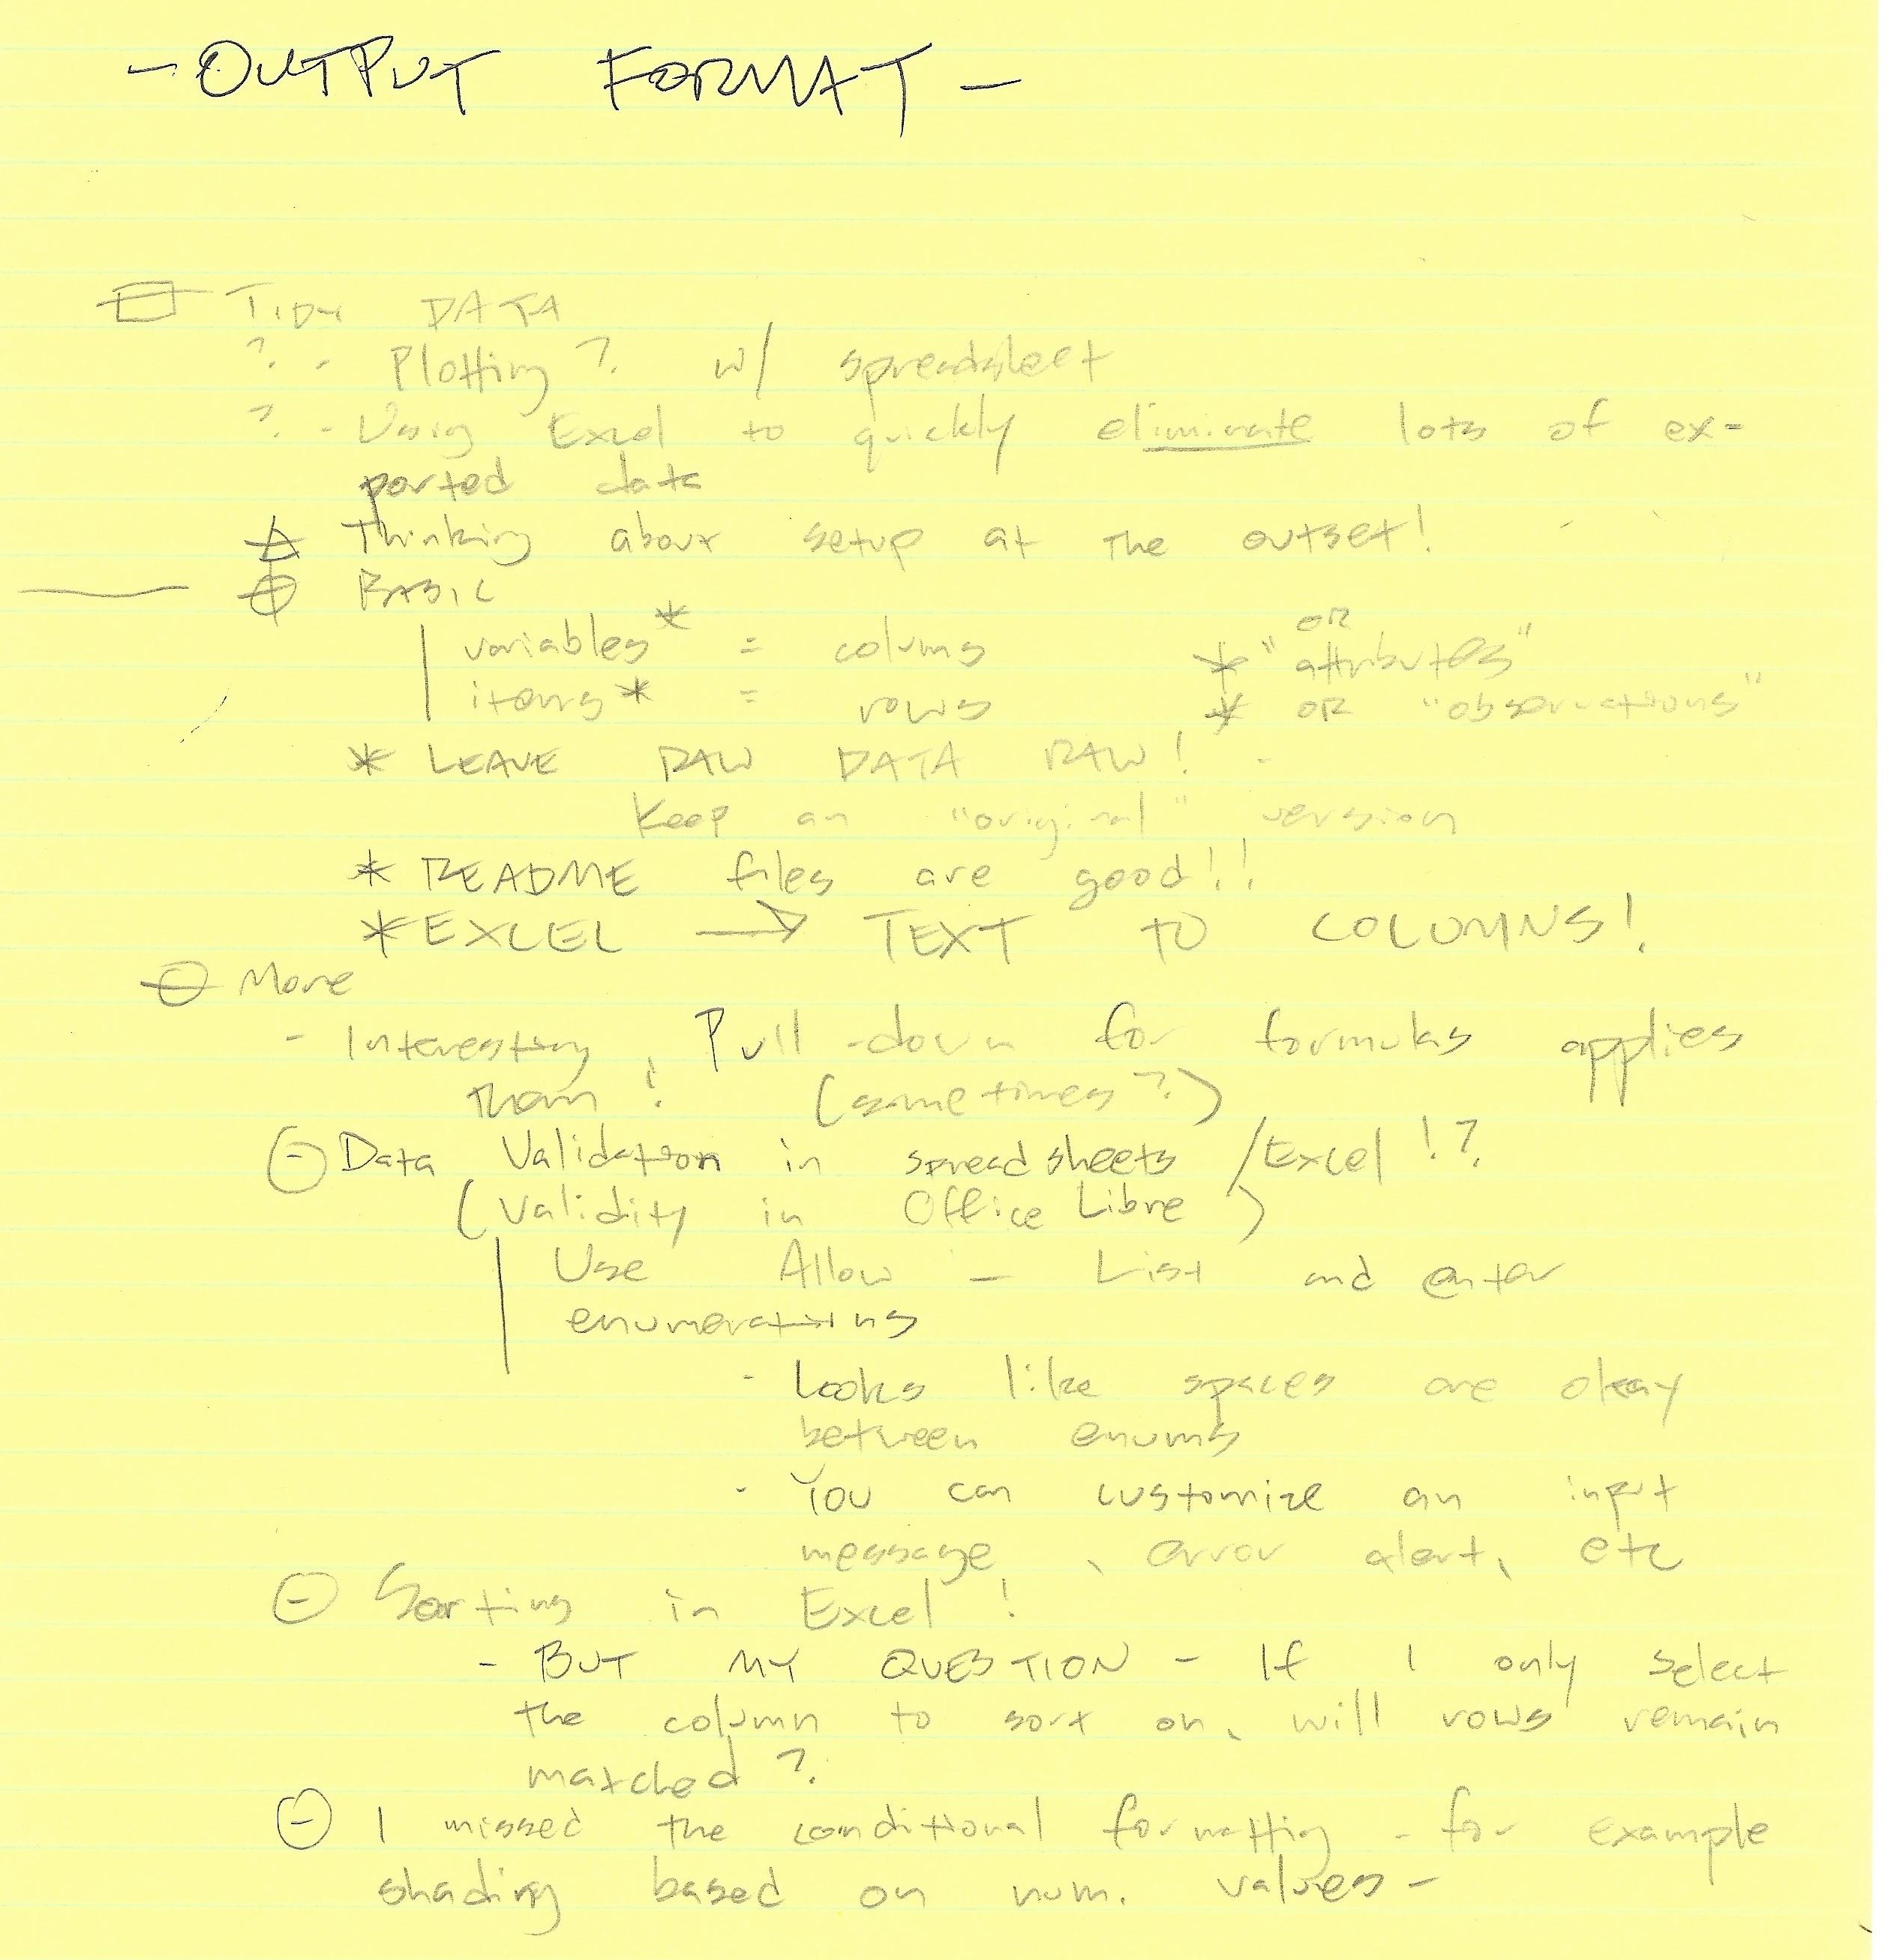 - OUTPUT FORMAT -
TIDY DATA
? - Plotting? w/ spreadsheet
? - Using Excel to quickly eliminate lots of ex-
ported data
Thinking about setup at the outset!
BASIC
variables* = colums * "or attributes"
items* = rows * OR "observations"
* LEAVE RAW DATA RAW!
Keep an "original" version
* README files are good!!
* EXCEL → TEXT TO COLUMNS!
More
- Interesting, Pull-down for formulas applies
them! (sometimes?)
Data Validation in spreadsheets /Excel!?
(Validity in Office Libre)
Use Allow - List and enter
enumerations
- Looks like spaces are okay
between enums
- You can customize an input
message, error alert, etc
Sorting in Excel!
- BUT MY QUESTION - If I only select
the column to sort on, will rows remain
matched?
I missed the conditional formatting - for example
shading based on num. values -